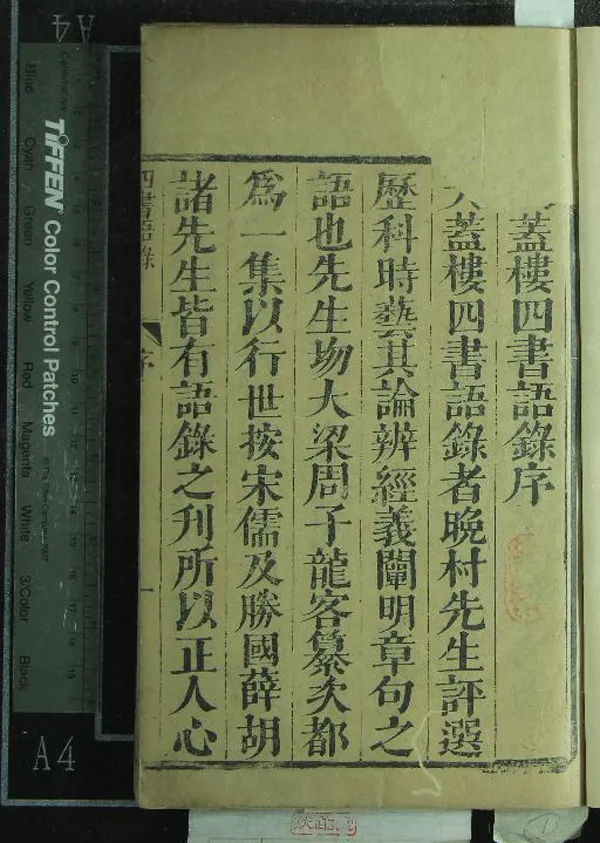 蓋樓四書語錄序
蓋樓四書語錄者晚村先生評選
歷科時藝其論辨經義闡明章句之
語也先生歾大梁周子龍客纂次都
為一集以行世按宋儒及勝國薛胡
諸先生皆有語錄之刋所以正人心
四書語錄 序 一
TIFFEN Color Control Patches
Blue Cyan Green Yellow Red Magenta White 3/Color Black
A4
A4